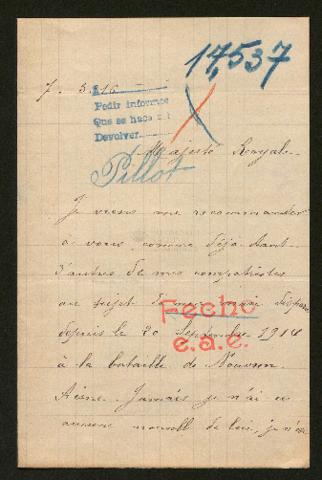 17,537
7. 5. 16
Pedir informes
Que se haga
Devolver
Majesté Royale.
Pillot
Je viens me recommander
à vous comme déjà tant
d'autres de mes compatriotes
au sujet de mon mari disparu
Fecho
depuis le 20 Septembre 1914
e.a.e.
à la bataille de Nouvron
Aisne. Jamais je n'ai eu
aucune nouvelle de lui, je n'ai